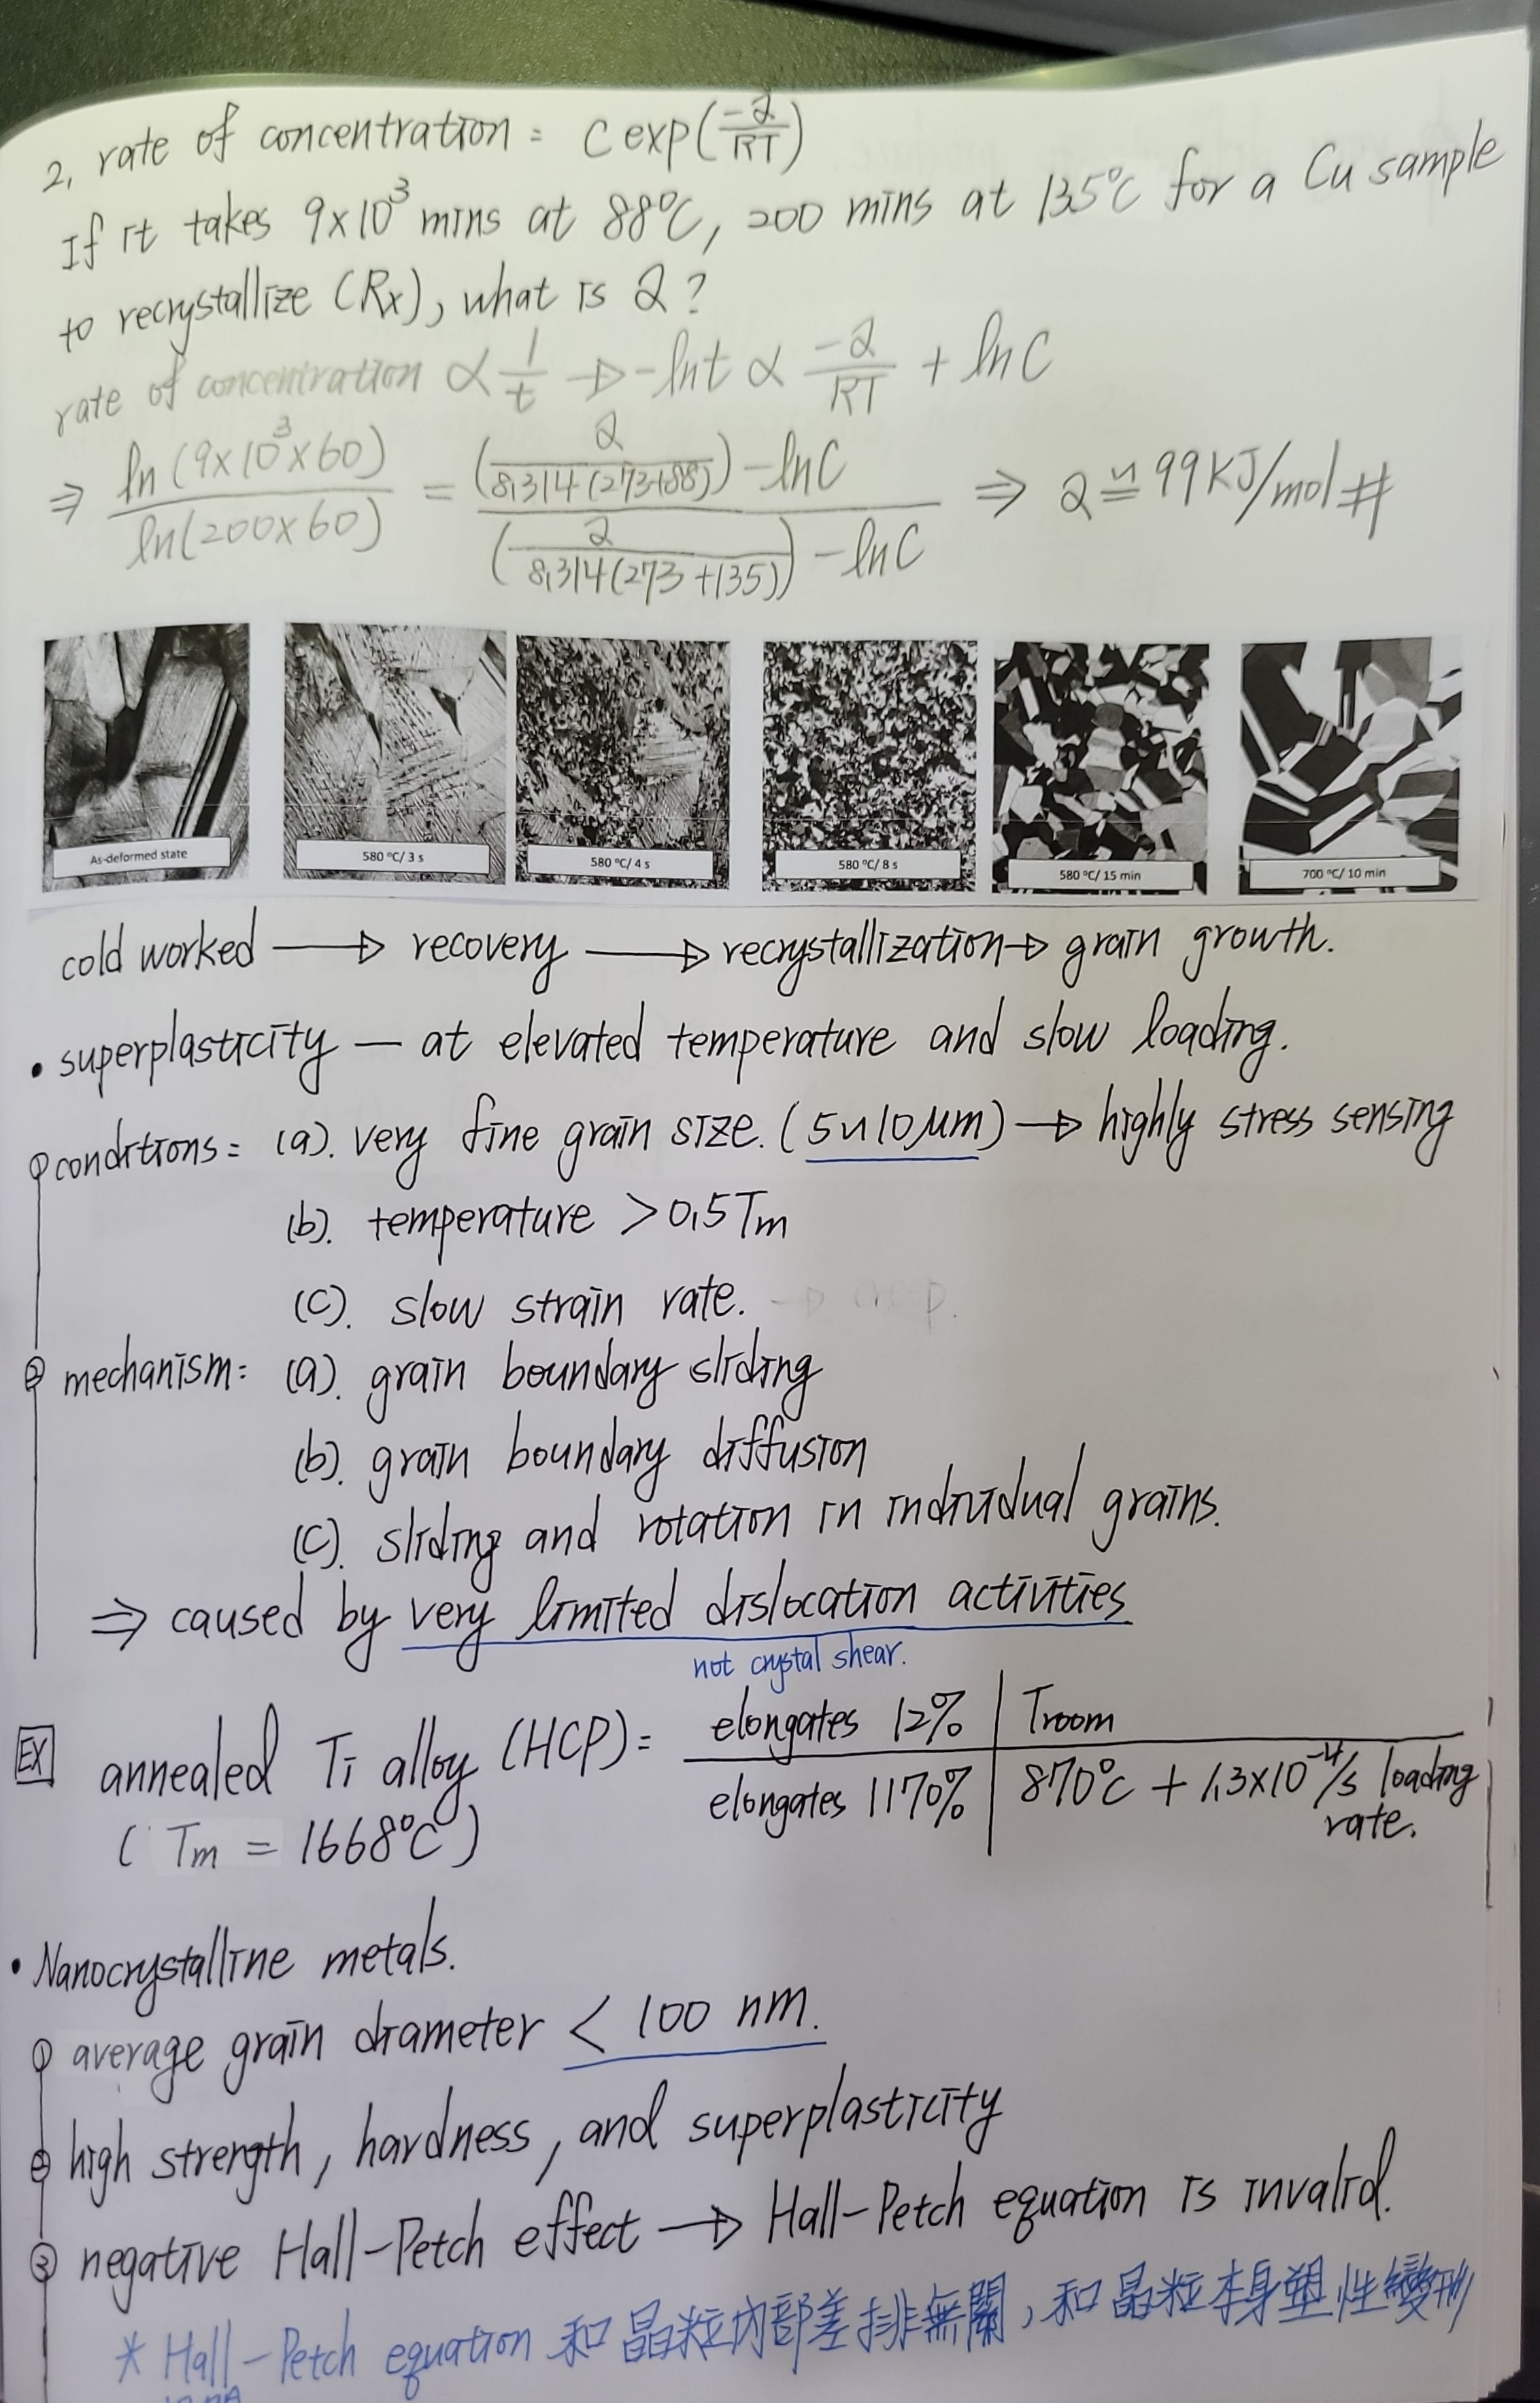 2. rate of concentration = C exp(-Q/RT)
If it takes 9x10³ mins at 88°C, 200 mins at 135°C for a Cu sample
to recrystallize (Rx), what is Q?
rate of concentration ∝ 1/t → -lnt ∝ -Q/RT + lnC
⇒ ln(9x10³x60) / ln(200x60) = ((Q / 8.314(273+88)) - lnC) / ((Q / 8.314(273+135)) - lnC) ⇒ Q ≅ 99KJ/mol #
As-deformed state
580 °C/ 3 s
580 °C/ 4 s
580 °C/ 8 s
580 °C/ 15 min
700 °C/ 10 min
cold worked → recovery → recrystallization → grain growth.
• superplasticity — at elevated temperature and slow loading.
① conditions = (a). very fine grain size. (5~10 μm) → highly stress sensing
(b). temperature > 0.5Tm
(c). slow strain rate. → creep.
② mechanism = (a). grain boundary sliding
(b). grain boundary diffusion
(c). sliding and rotation in individual grains.
⇒ caused by very limited dislocation activities
not crystal shear.
EX annealed Ti alloy (HCP) = elongates 12% | Troom
elongates 1170% | 870°C + 1.3x10⁻⁴/s loading
rate.
(Tm = 1668°C)
• Nanocrystalline metals.
① average grain diameter < 100 nm.
② high strength, hardness, and superplasticity
③ negative Hall-Petch effect → Hall-Petch equation is invalid.
* Hall-Petch equation 和晶粒內部差排無關, 和晶粒本身塑性變形